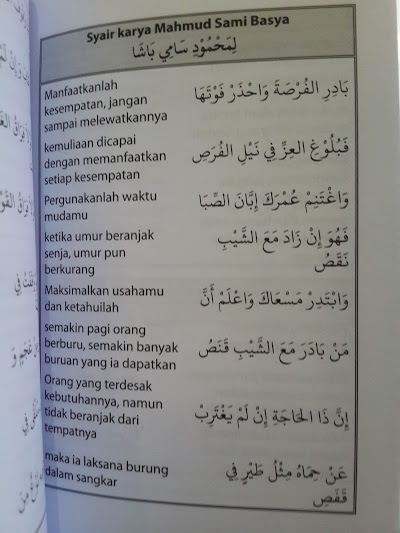 Syair karya Mahmud Sami Basya
لِمَحْمُوْدِ سَامِي بَاشَا
Manfaatkanlah
kesempatan, jangan
sampai melewatkannya
بَادِرِ الْفُرْصَةَ وَاحْذَرْ فَوْتَهَا
kemuliaan dicapai
dengan memanfaatkan
setiap kesempatan
فَبُلُوْغُ الْعِزِّ فِي نَيْلِ الْفُرَصِ
Pergunakanlah waktu
mudamu
وَاغْتَنِمْ عُمْرَكَ إِبَّانَ الصِّبَا
ketika umur beranjak
senja, umur pun
berkurang
فَهُوَ إِنْ زَادَ مَعَ الشَّيْبِ
نَقَصُ
Maksimalkan usahamu
dan ketahuilah
وَابْتَدِرْ مَسْعَاكَ وَاعْلَمْ أَنَّ
semakin pagi orang
berburu, semakin banyak
buruan yang ia dapatkan
مَنْ بَادَرَ مَعَ الشَّيْبِ قَنَصُ
Orang yang terdesak
kebutuhannya, namun
tidak beranjak dari
tempatnya
إِنَّ ذَا الْحَاجَةِ إِنْ لَمْ يَغْتَرِبْ
maka ia laksana burung
dalam sangkar
عَنْ حِمَاهُ مِثْلُ طَيْرٍ فِي
قَفَصِ